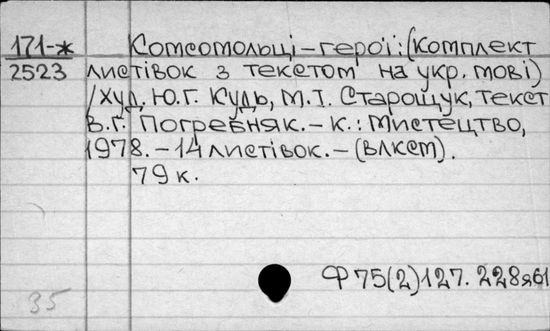 171-ж Комсомольці – герої: (комплект
2523 листівок з текстом на укр. мові)
/худ. Ю.Г. Кудь, М.Т. Старощук, текст
В.Г. Погребняк. – К.: Мистецтво,
1978. – 14 листівок. – (ВЛКСМ).
79 к.
Ф 75(2)127. 228я61
35